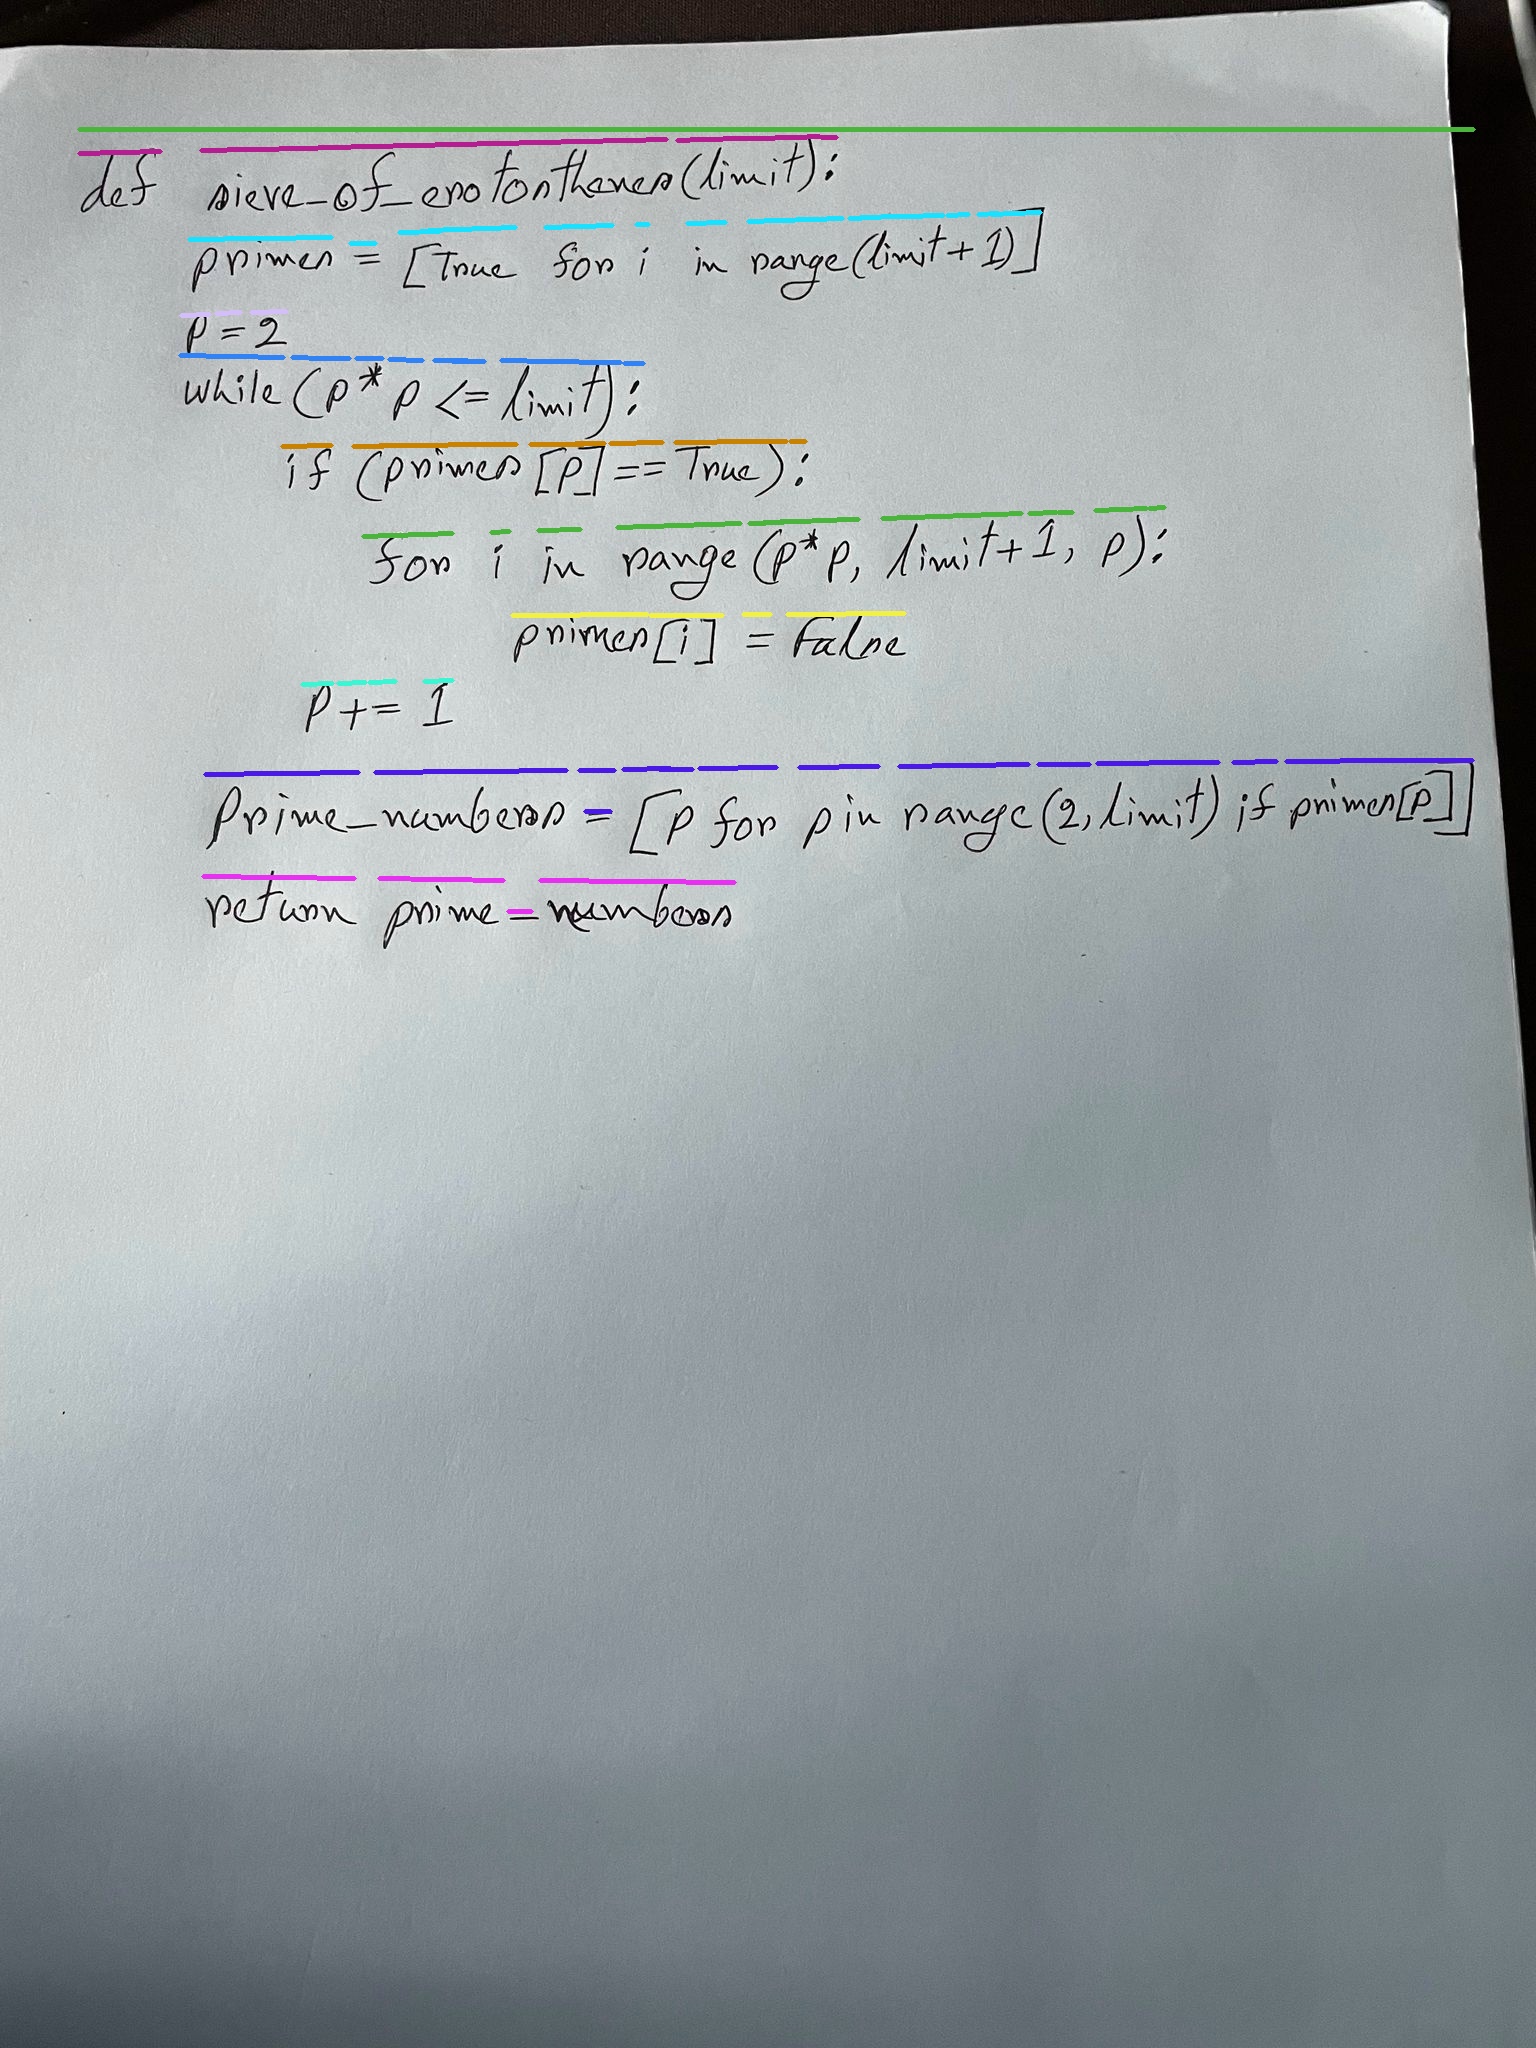 def sieve_of_erotosthenes(limit):
primes = [True for i in range(limit+1)]
p = 2
while (p*p <= limit):
if (primes[p] == True):
for i in range(p*p, limit+1, p):
primes[i] = False
p += 1
Prime_numbers = [p for p in range(2, limit) if primes[p]]
return prime_numbers